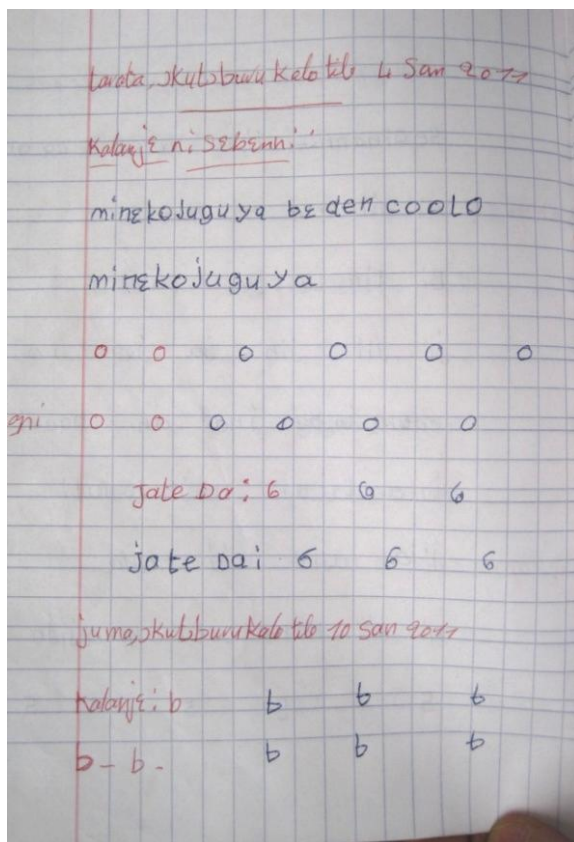 tarata, ɔkutɔburu kalo tile 4 San 2017
Kalanjɛ ni sɛbɛnni
minɛkojuguya bɛ den coolo
minɛkojuguya
o o o o o o
ɛni o o o o o o
Jate Da: 6 6 6
jate Dai 6 6 6
juma, ɔkutɔburu kalo tile 10 San 2017
Kalanjɛ: b b b b
b - b - b b b